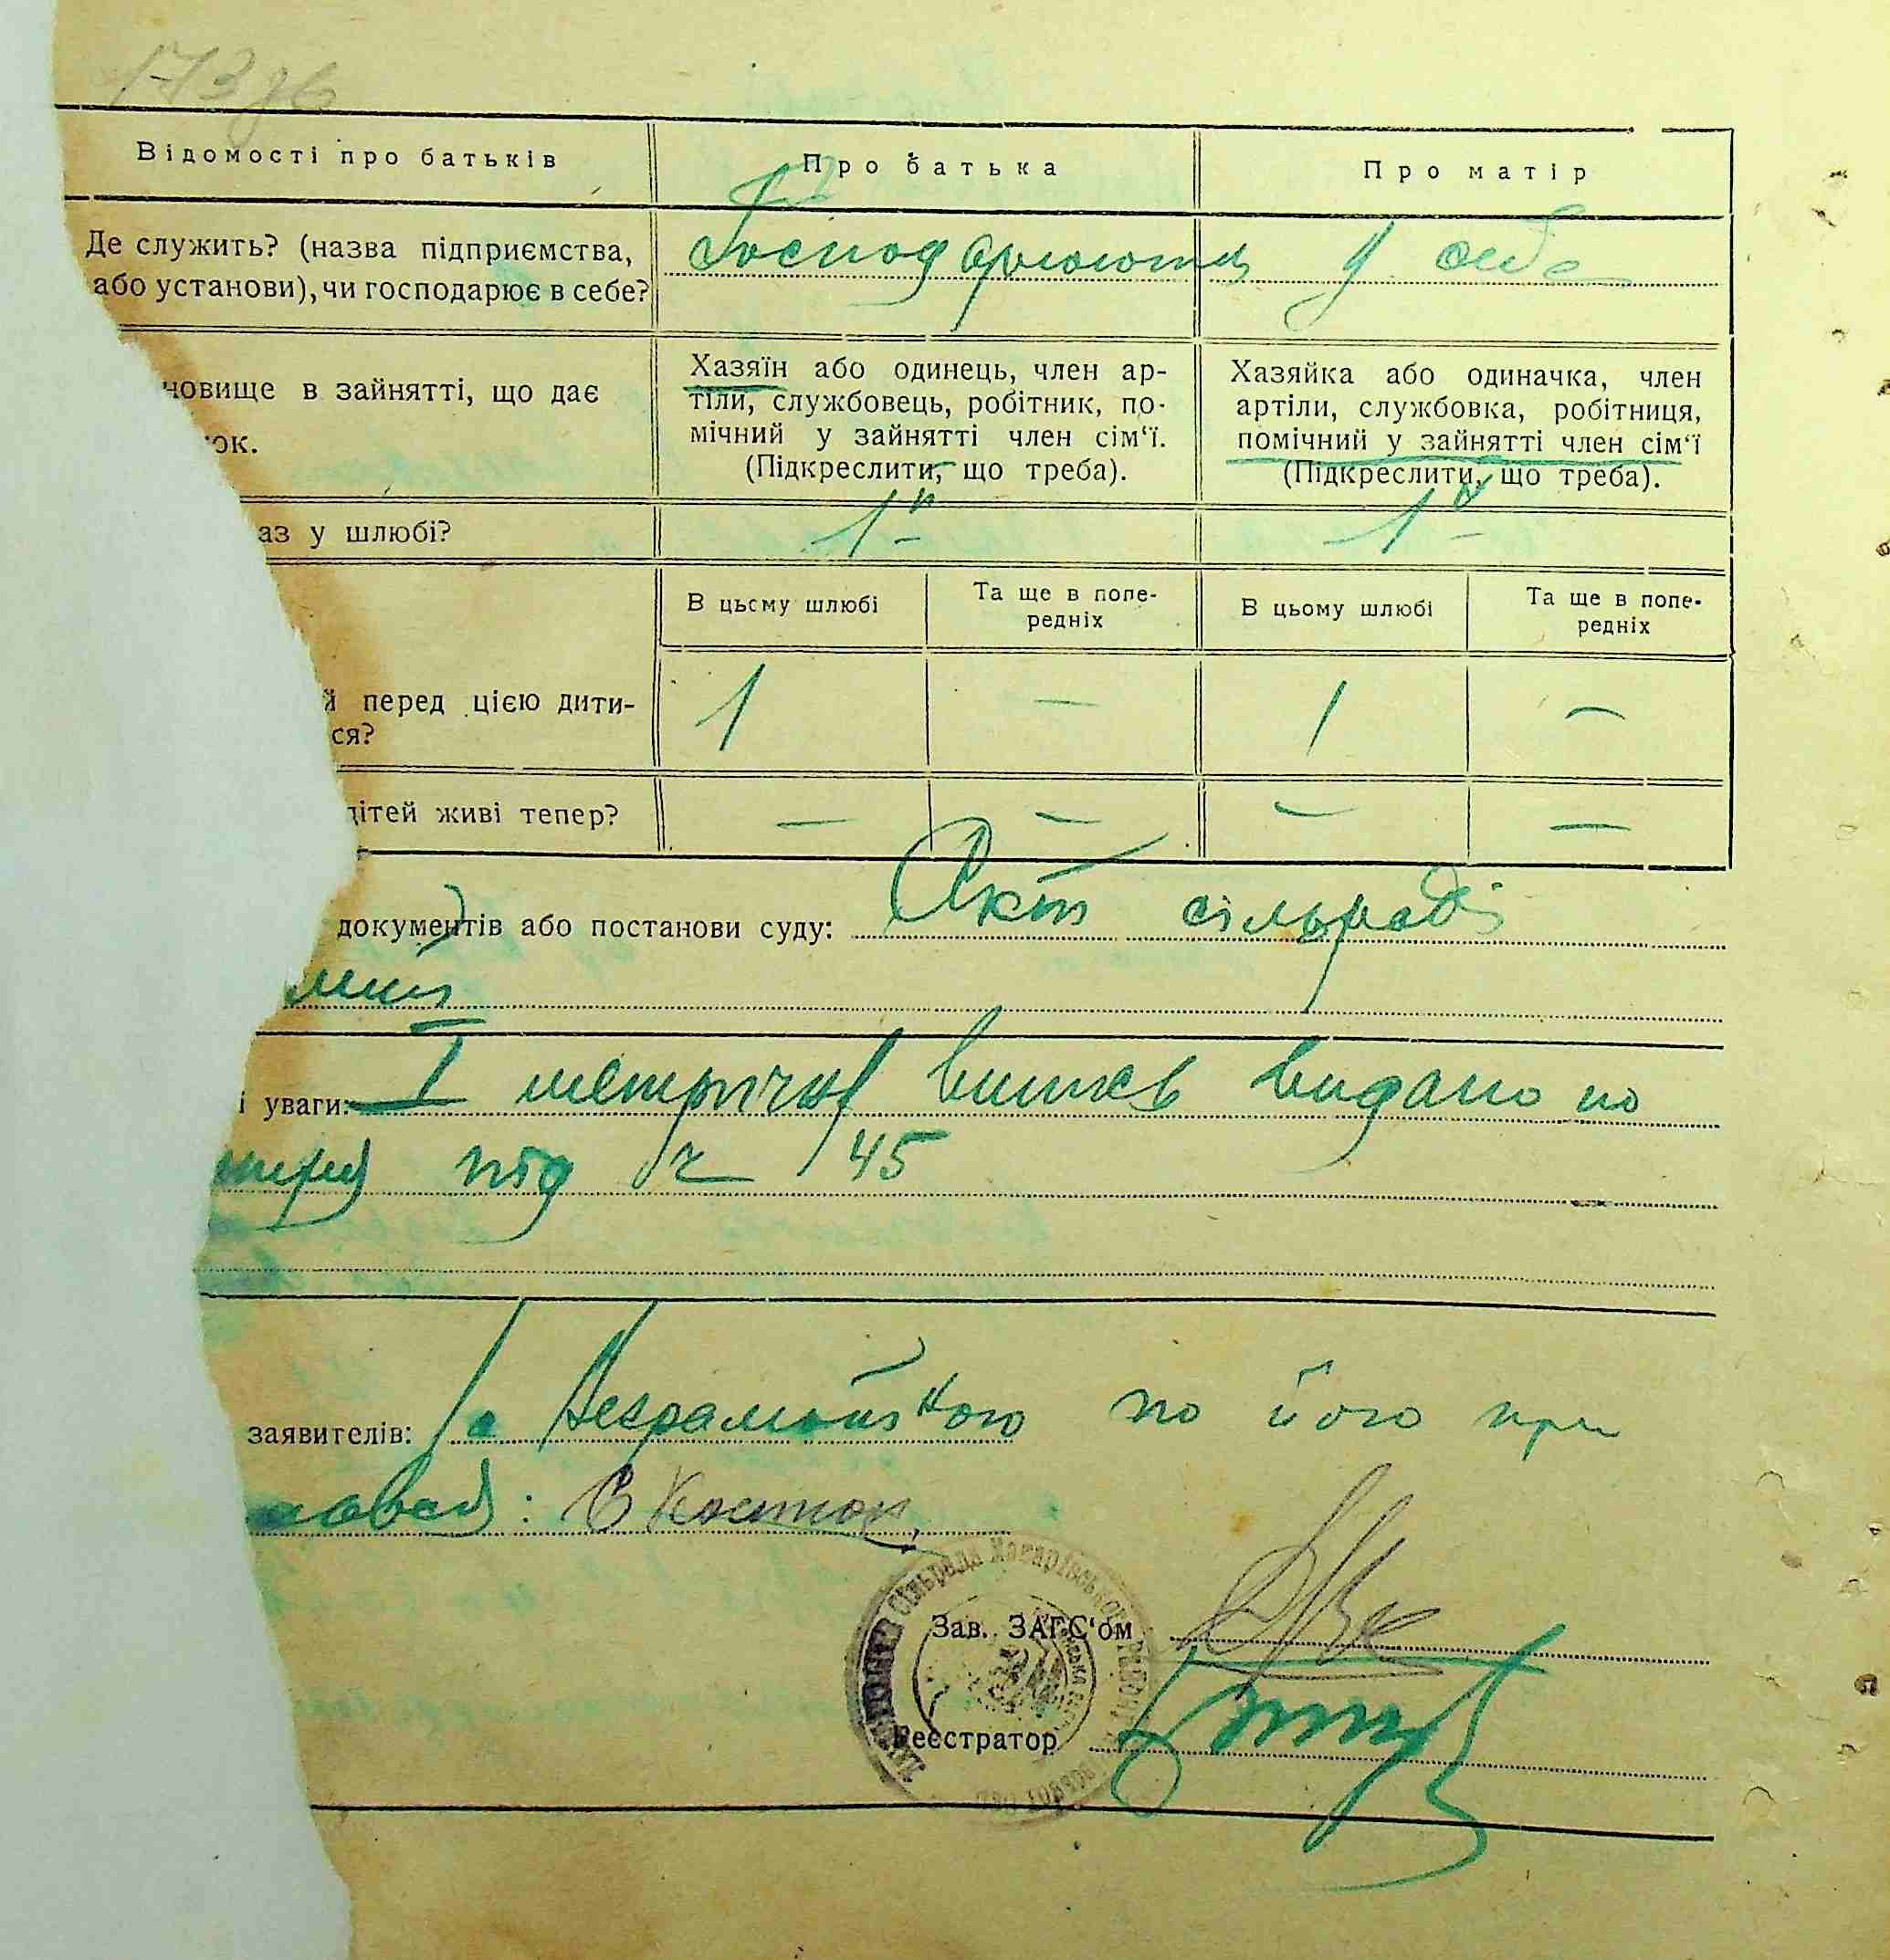 173зв
Відомості про батьків
Про батька
Про матір
Де служить? (назва підприємства,
або установи), чи господарює в себе?
Господарюють у себе
новище в зайнятті, що дає
ок.
Хазяїн або одинець, член ар-
тіли, службовець, робітник, по-
мічний у зайнятті член сім‘ї.
(Підкреслити, що треба).
Хазяйка або одиначка, член
артіли, службовка, робітниця,
помічний у зайнятті член сім‘ї
(Підкреслити, що треба).
аз у шлюбі?
1й
1й
В цьому шлюбі
Та ще в попе-
редніх
В цьому шлюбі
Та ще в попе-
редніх
й перед цією дити-
ся?
1
—
1
—
дітей живі тепер?
—
—
—
—
документів або постанови суду: Акт сільради
і уваги: І метричний витяг видано по
під ч 45
заявителів: За неграмотного по його про
: С Костюк
Зав. ЗАГС‘ом
Реєстратор